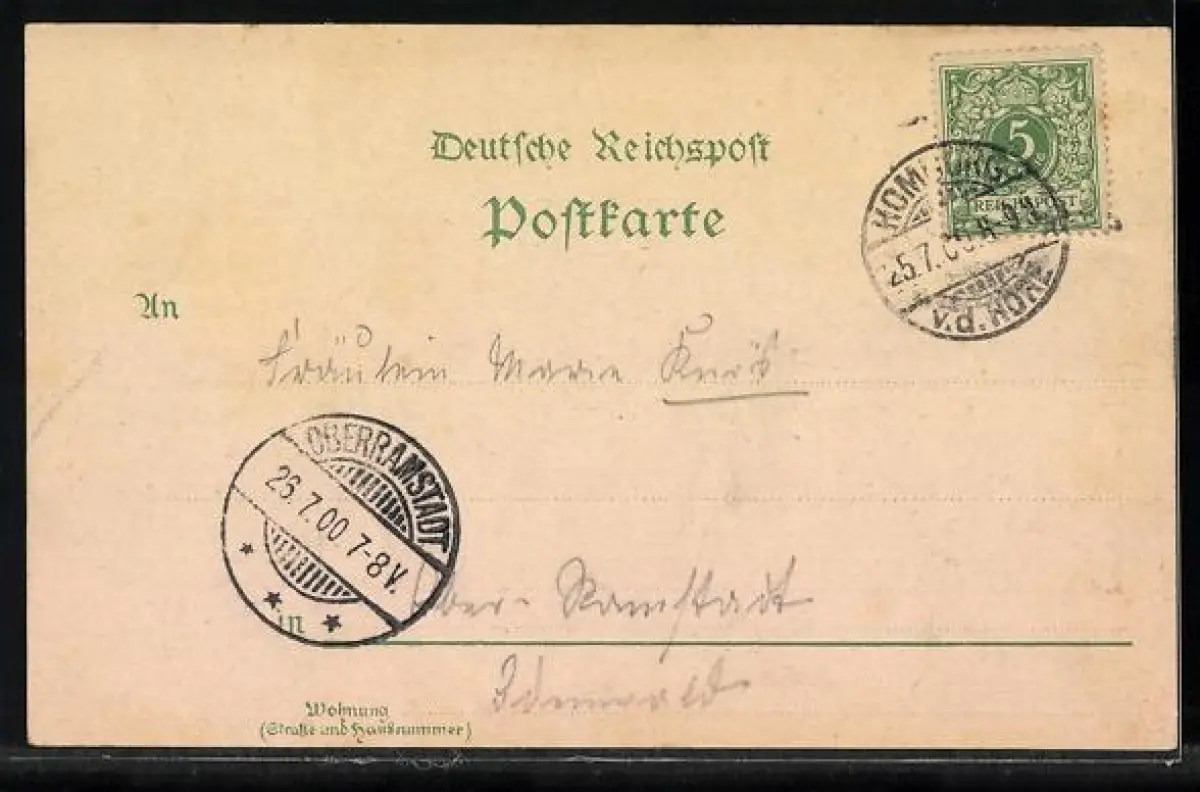 Deutsche Reichspost
Postkarte
5
REICHSPOST
HOMBURG
25.7.00.8-9
v.d. HÖHE
An
Fräulein Marie
OBERRAMSTADT
26.7.00 7-8V.
in
Ober-Ramstadt
Odenwald
Wohnung
(Straße und Hausnummer)